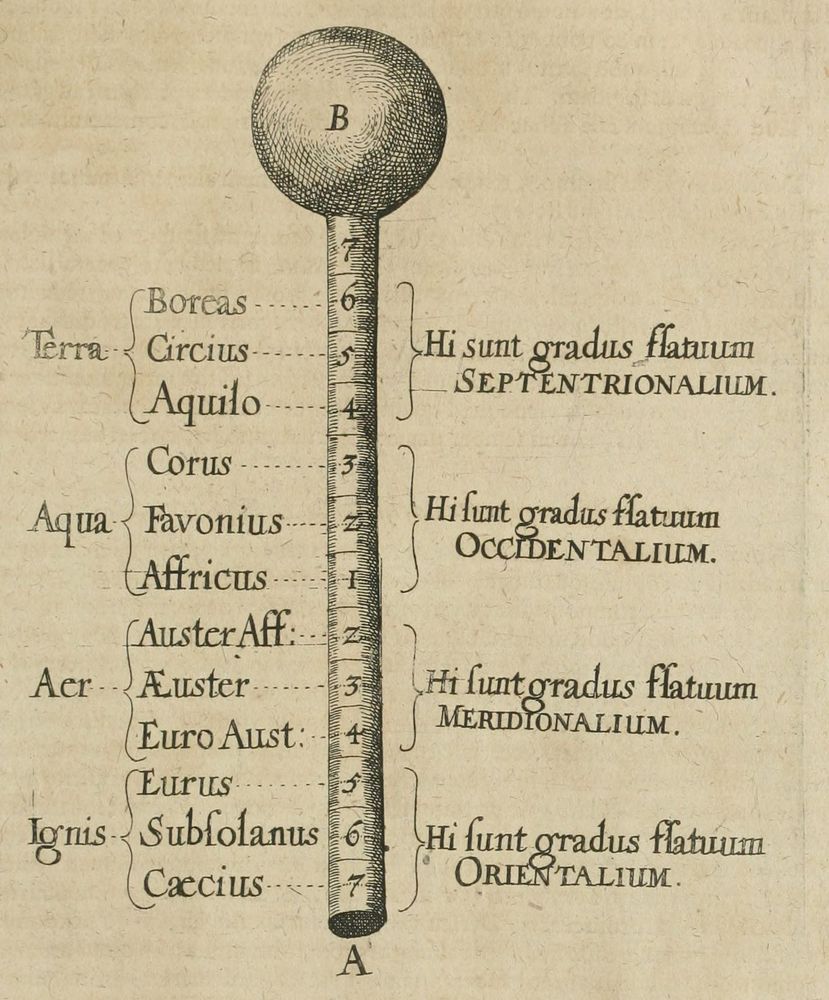 B
7
Boreas 6
Terra Circius 5 Hi sunt gradus flatuum
Aquilo 4 SEPTENTRIONALIUM.
Corus 3
Aqua Favonius 2 Hi ſunt gradus flatuum
OCCIDENTALIUM.
Affricus 1
Auster Aff: 2
Aer Æuster 3 Hi ſunt gradus flatuum
MERIDIONALIUM.
Euro Aust: 4
Eurus 5
Ignis Subſolanus 6 Hi ſunt gradus flatuum
Cæcius 7 ORIENTALIUM.
A